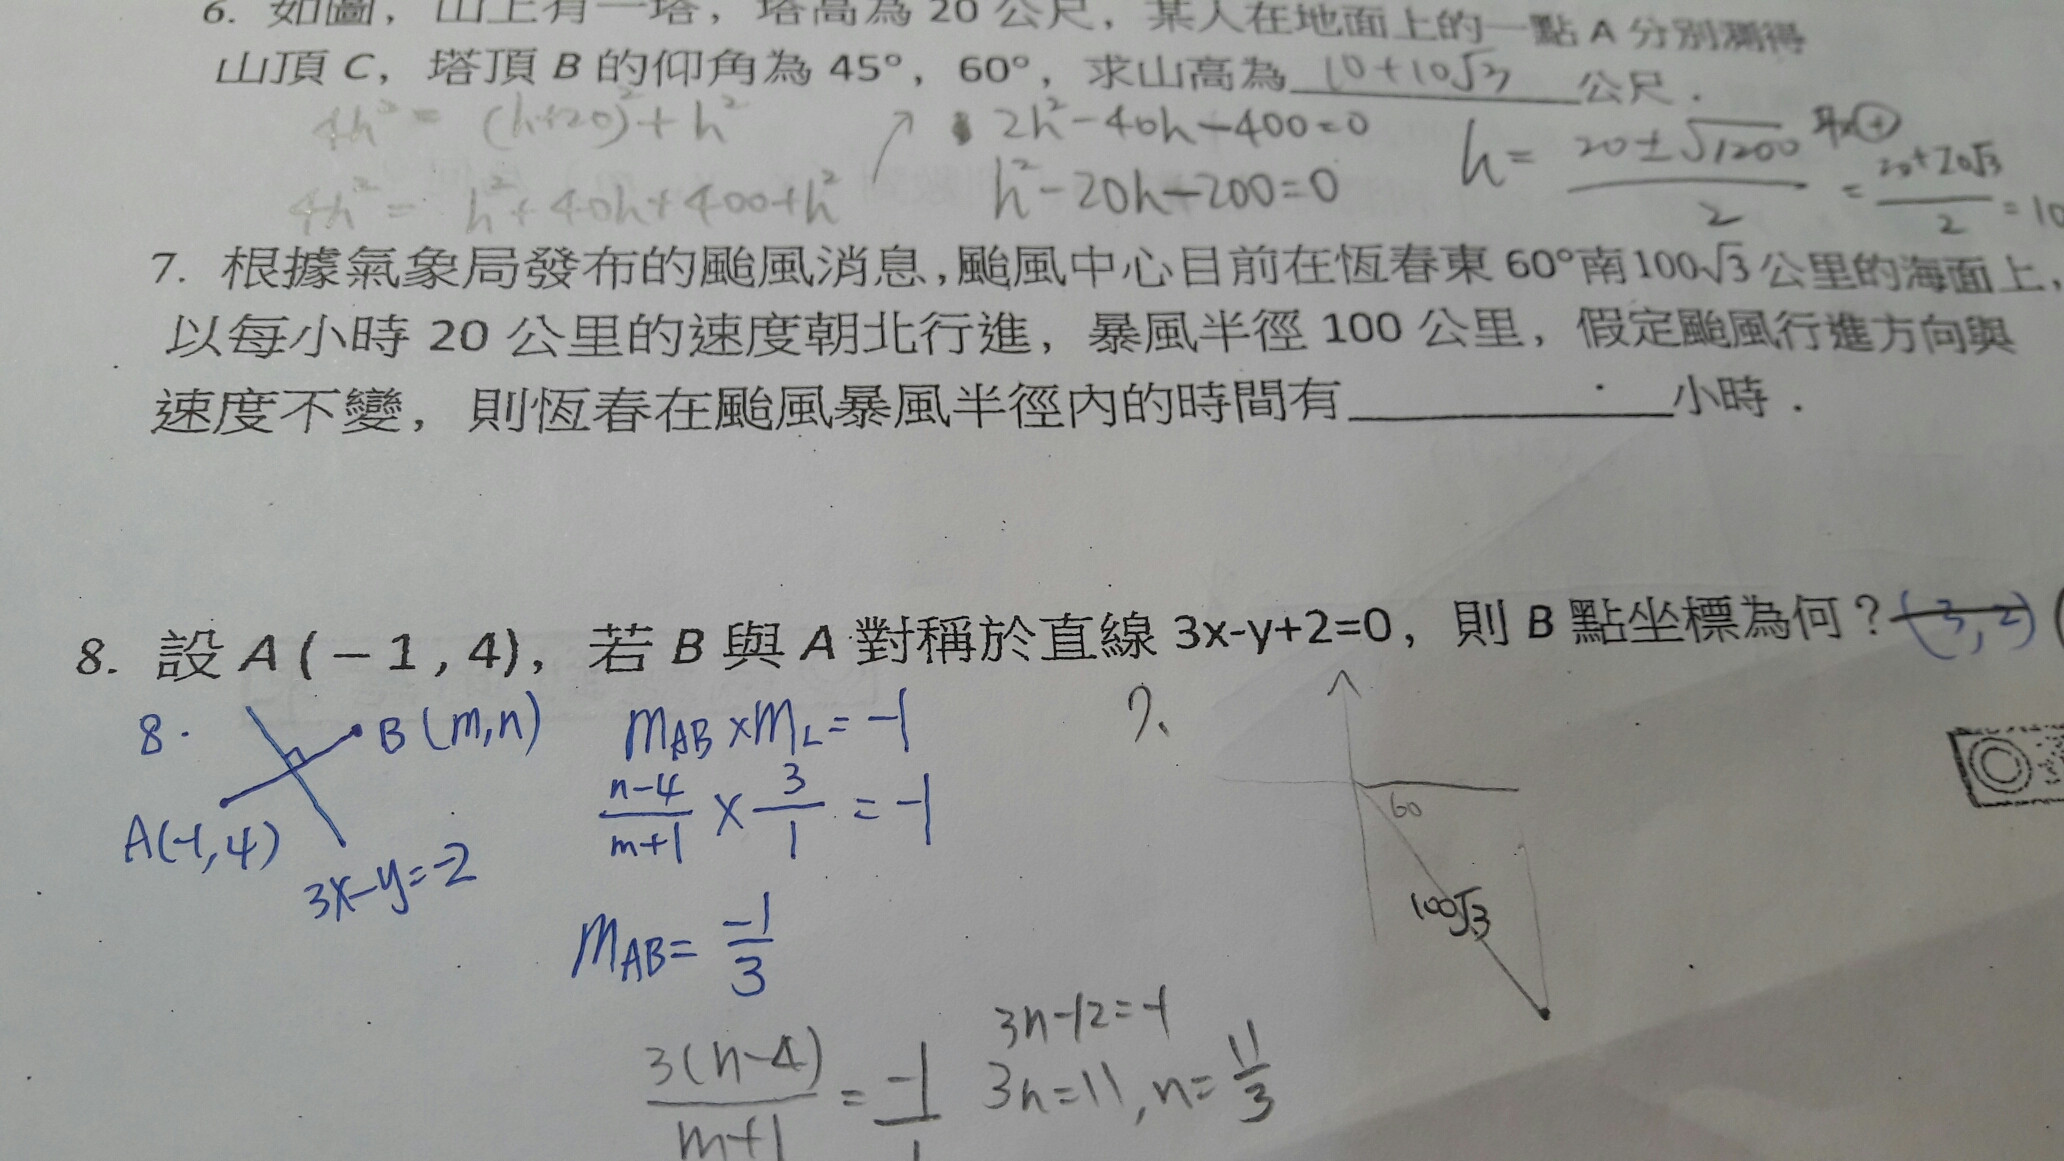 6. 如圖，山上有一塔，塔高為 20 公尺，某人在地面上的一點 A 分別測得
山頂 C，塔頂 B 的仰角為 45°，60°，求山高為 10+10√3 公尺．
4h² = (h+20)² + h²
2h²-40h-400=0
4h² = h²+40h+400+h²
h²-20h-200=0
h= (20±√1200)/2 取⊕ = (20+20√3)/2 = 10
7. 根據氣象局發布的颱風消息，颱風中心目前在恆春東 60°南100√3 公里的海面上，
以每小時 20 公里的速度朝北行進，暴風半徑 100 公里，假定颱風行進方向與
速度不變，則恆春在颱風暴風半徑內的時間有____________小時．
8. 設 A (－1 , 4)，若 B 與 A 對稱於直線 3x-y+2=0，則 B 點坐標為何？(3,2) (
8.
B (m,n)
A(-1,4)
3x-y=-2
mAB × mL = -1
(n-4)/(m+1) × 3/1 = -1
mAB = -1/3
3(n-4)/(m+1) = -1/1
3n-12=-1
3n=11, n= 11/3
7.
60
100√3